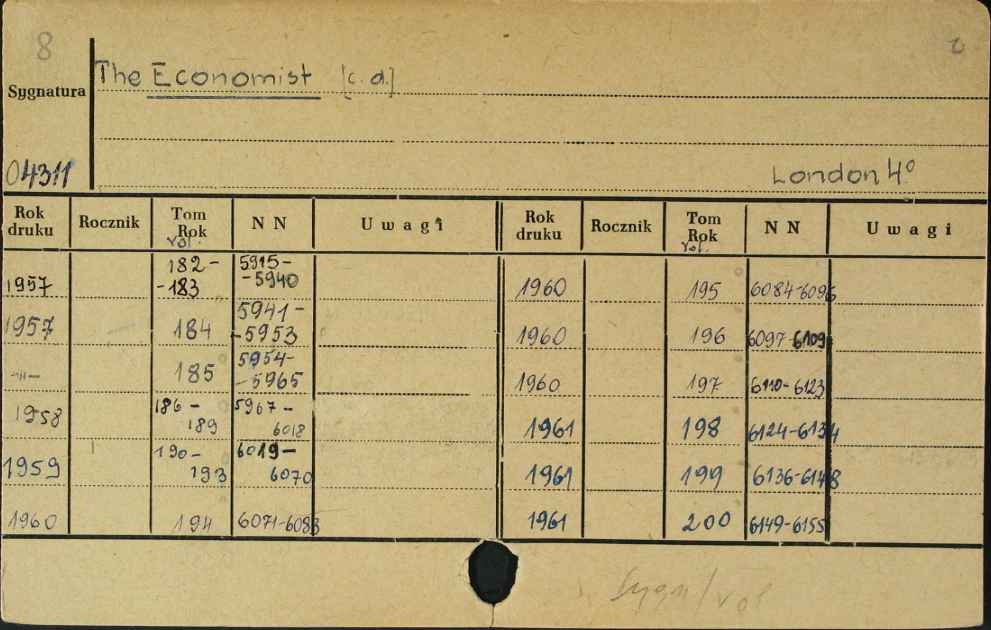 8
The Economist [c. d.]
Sygnatura
04311
London 4°
Rok druku Rocznik Tom Rok vol. N N Uwagi Rok druku Rocznik Tom Rok vol. N N Uwagi
1957 182-
-183 5915-
-5940
1957 184 5941-
-5953
-"- 185 5954-
-5965
1958 186-
189 5967-
6018
1959 190-
193 6019-
6070
1960 194 6071-6083
1960 195 6084-6096
1960 196 6097-6109
1960 197 6110-6123
1961 198 6124-6134
1961 199 6136-6148
1961 200 6149-6155
Sygn/vol